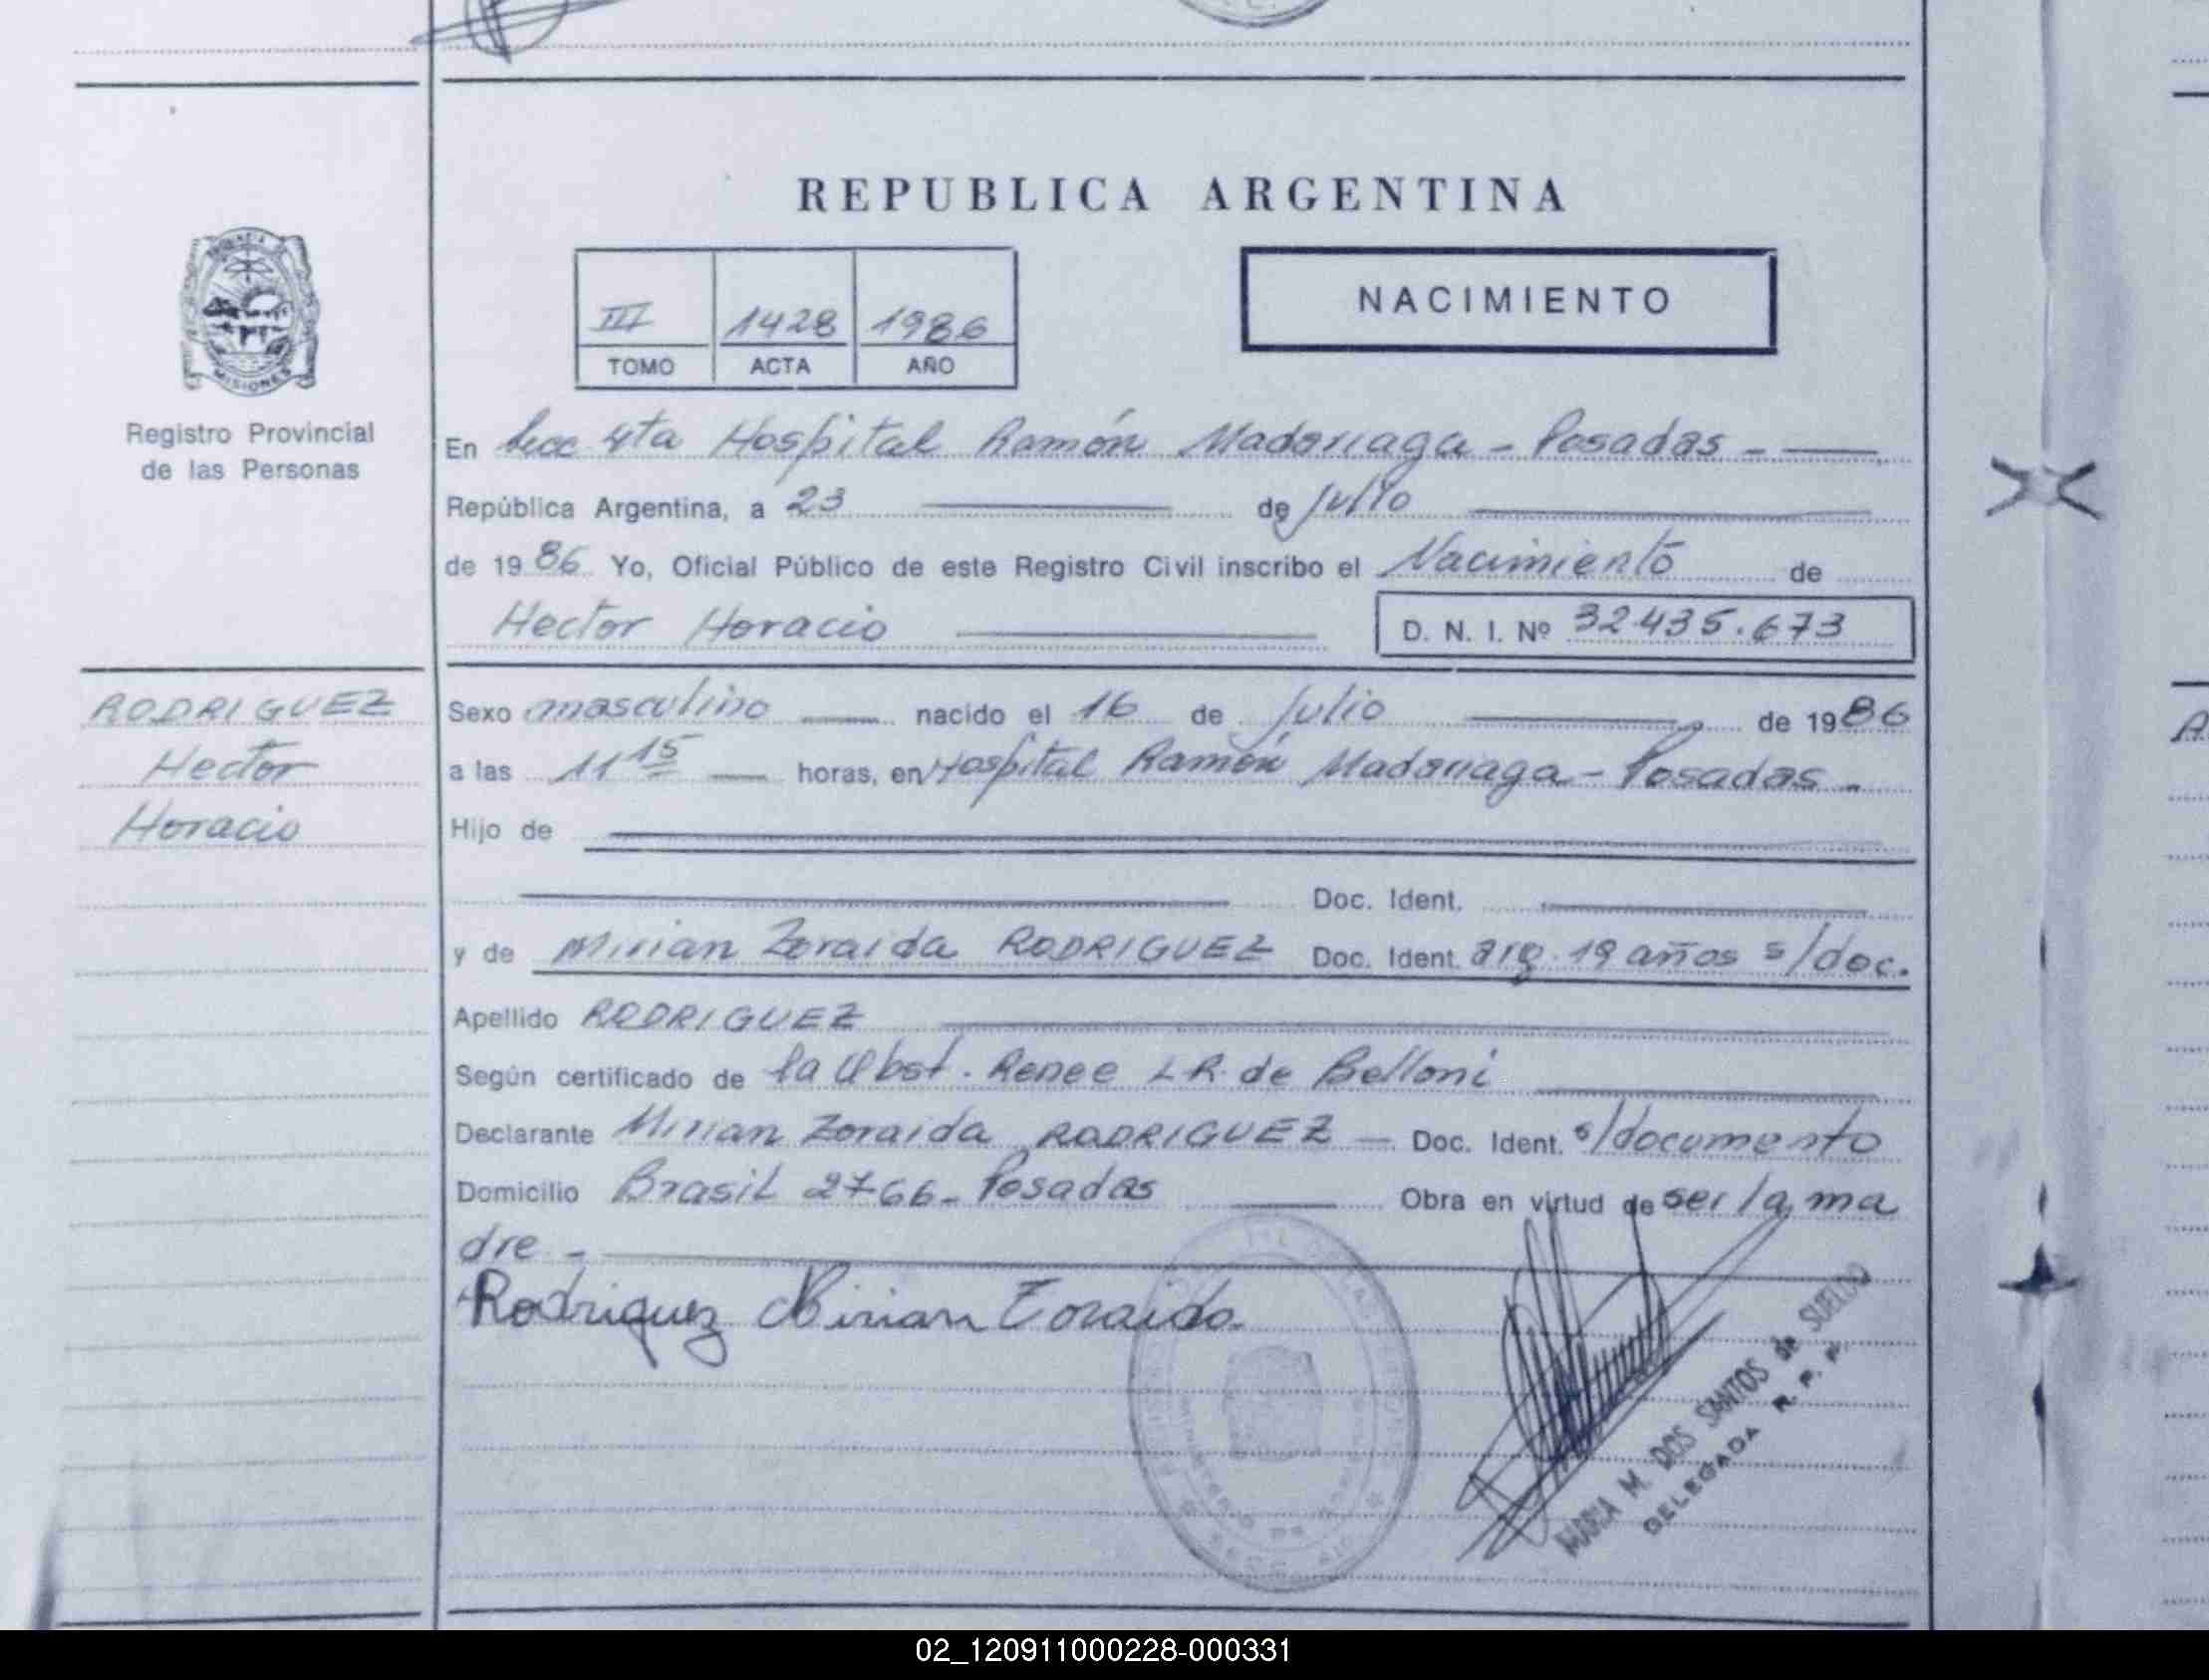 REPUBLICA ARGENTINA
III 1428 1986
TOMO ACTA AÑO
NACIMIENTO
MISIONES
Registro Provincial
de las Personas
En Secc 4ta Hospital Ramón Madariaga - Posadas -
República Argentina, a 23 de Julio
de 1986 Yo, Oficial Público de este Registro Civil inscribo el Nacimiento de
Hector Horacio D. N. I. Nº 32.435.673
RODRIGUEZ
Hector
Horacio
Sexo masculino nacido el 16 de Julio de 1986
a las 11 15 horas, en Hospital Ramón Madariaga - Posadas -
Hijo de
Doc. Ident.
y de Mirian Zoraida RODRIGUEZ Doc. Ident. arg. 19 años s/doc.
Apellido RODRIGUEZ
Según certificado de la Obst. Renee L R. de Belloni
Declarante Mirian Zoraida RODRIGUEZ - Doc. Ident. s/documento
Domicilio Brasil 2766 - Posadas Obra en virtud de ser la ma
dre -
Rodriguez Mirian Zoraida
MARIA M. DOS SANTOS de SUELDO
DELEGADA R. P. P.
02_120911000228-000331